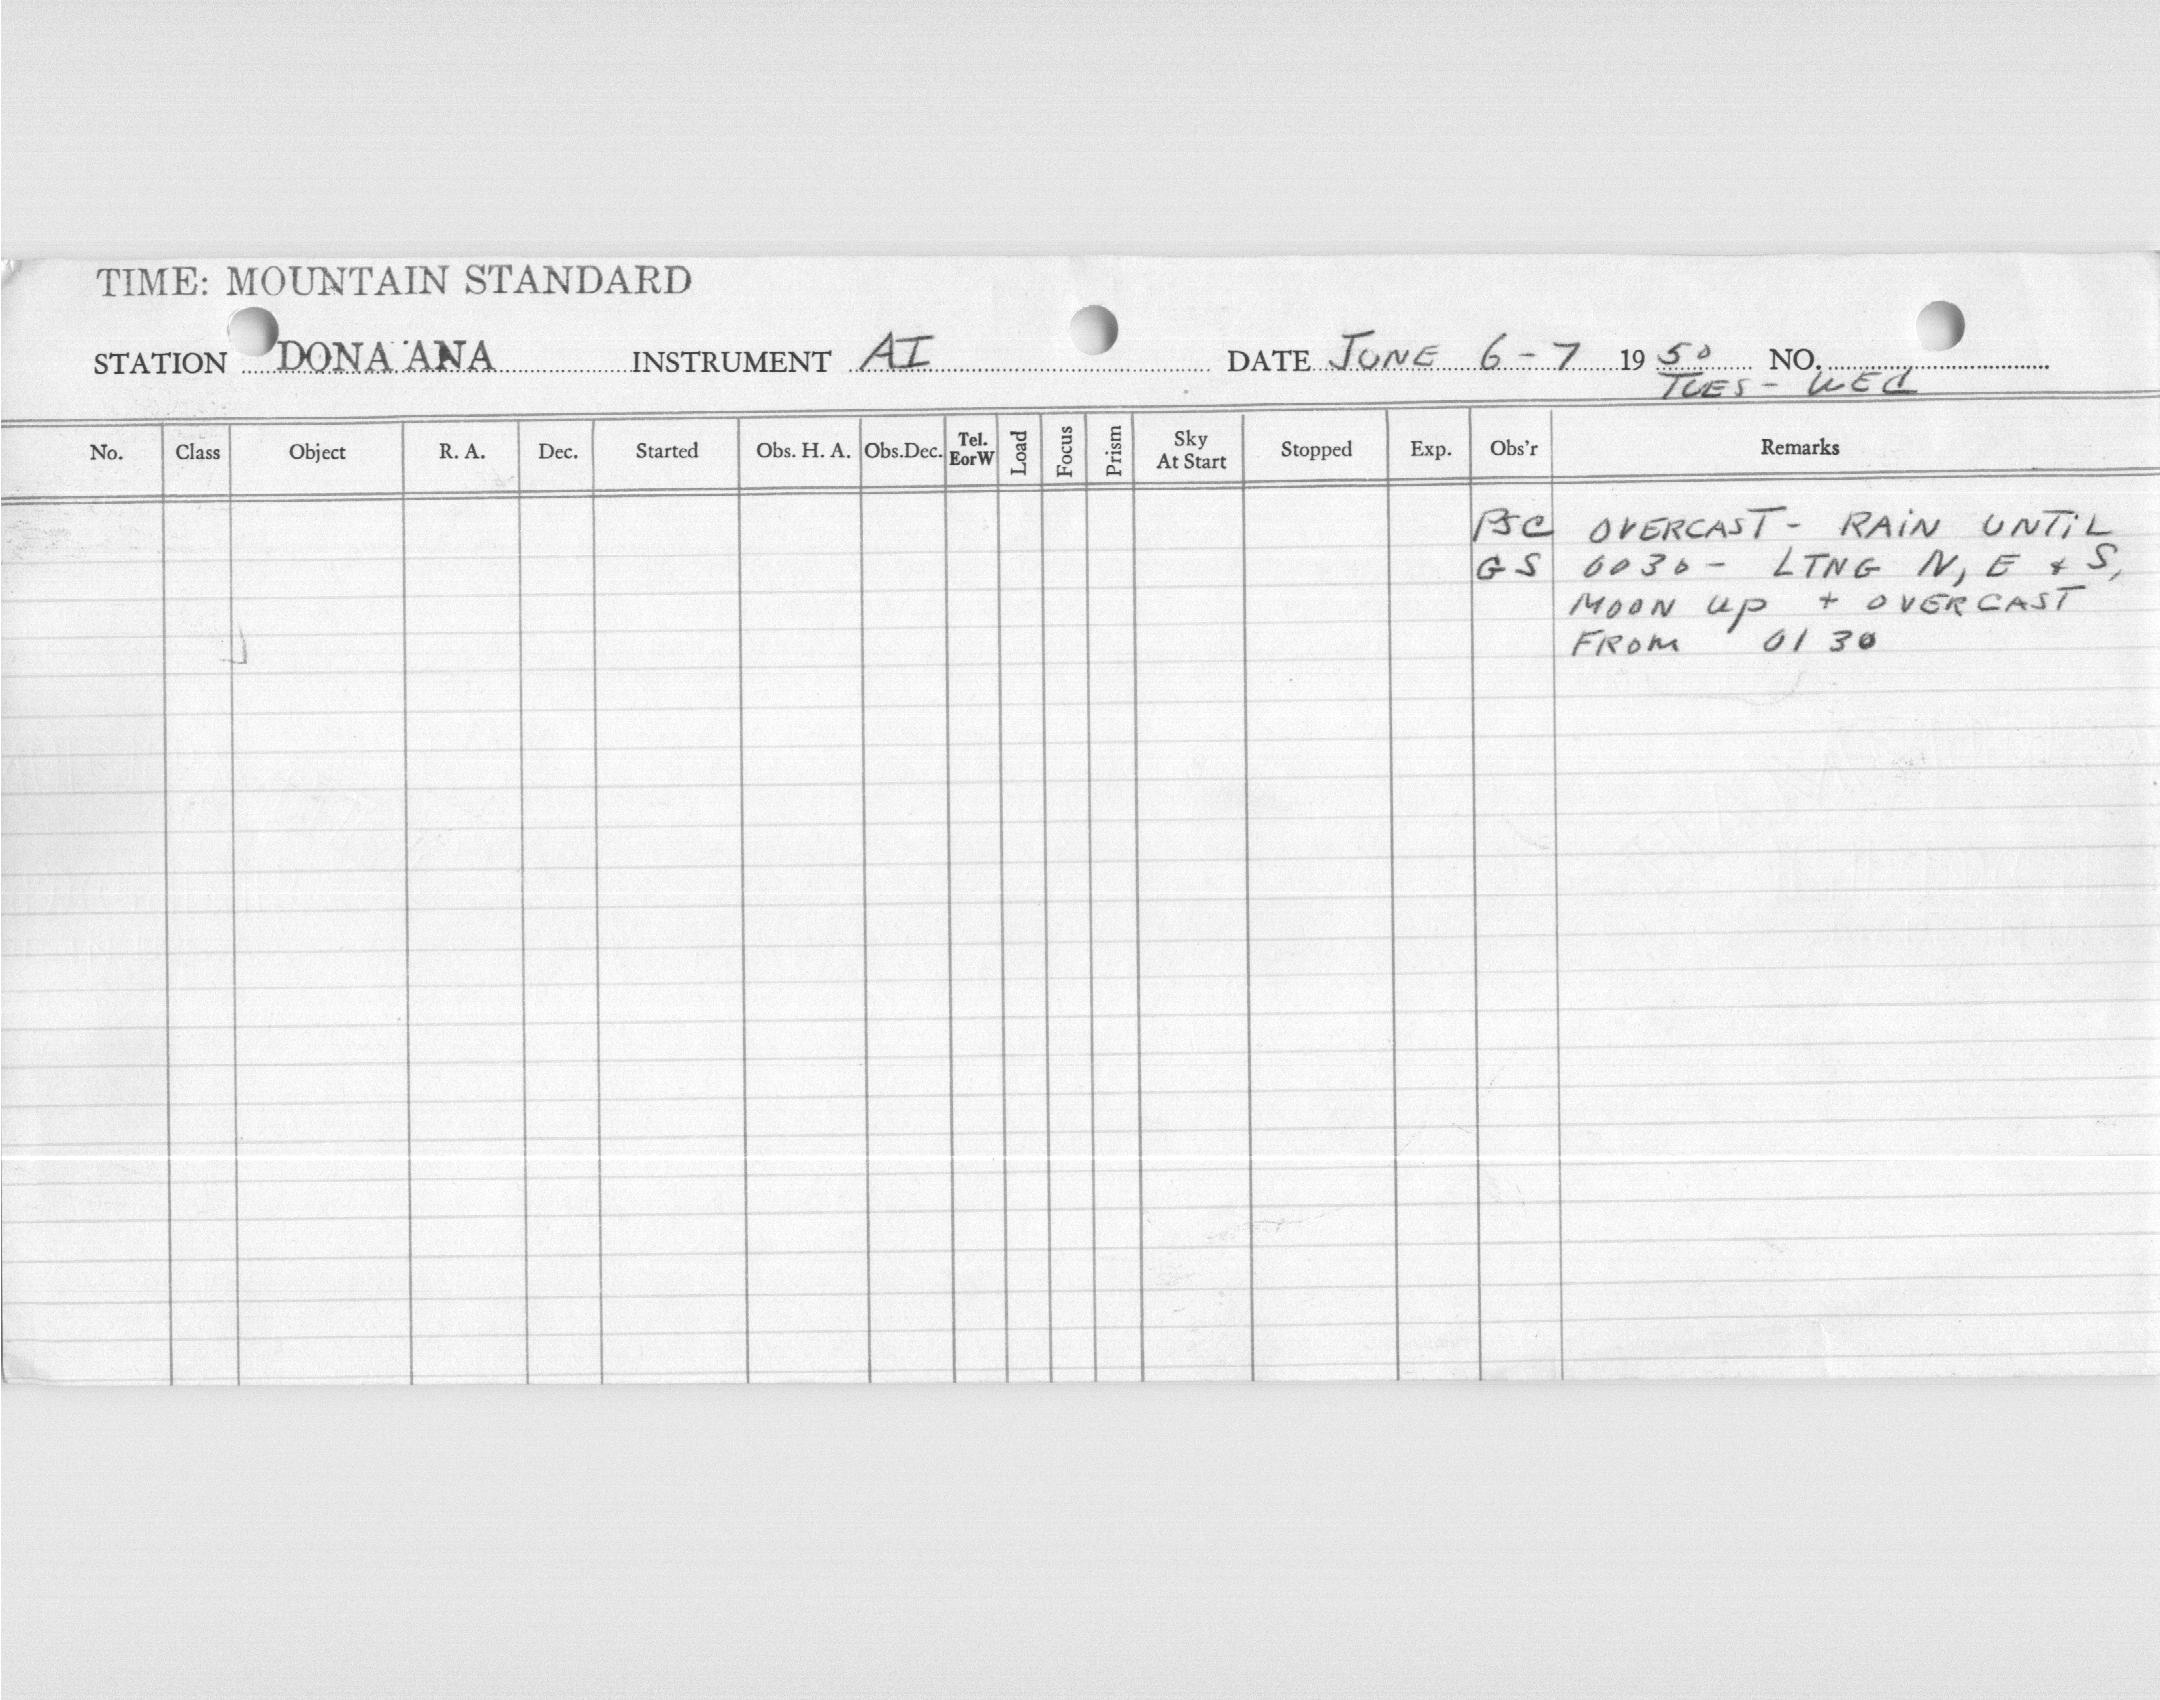 TIME: MOUNTAIN STANDARD
STATION DONA ANA INSTRUMENT AI DATE JUNE 6-7 1950 NO.
TUES - WED
No. Class Object R. A. Dec. Started Obs. H. A. Obs.Dec. Tel. EorW Load Focus Prism Sky At Start Stopped Exp. Obs'r Remarks
OVERCAST - RAIN UNTIL
GS 0030 - LTNG N, E + S,
MOON UP + OVERCAST
FROM 0130